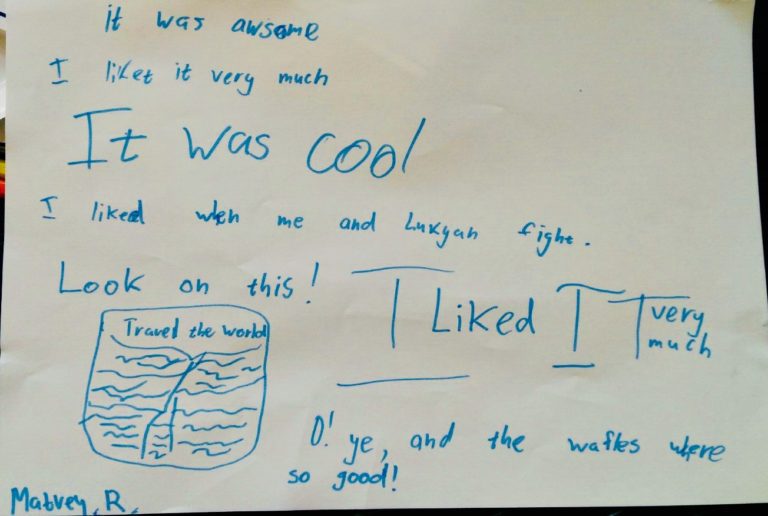 it was awsome
I liket it very much
It was cool
I liked when me and Lukyan fight.
Look on this!
I Liked IT very much
Travel the world
O! ye, and the wafles where
so good!
Matvey.R.